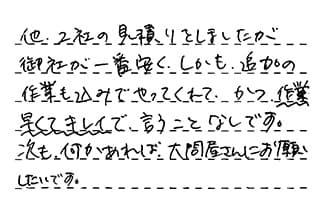 他、2社の見積りをしましたが
御社が一番安く、しかも、追加の
作業も込みでやってくれて、かつ、作業
早くてキレイで、言うことなしです。
次も、何かあれば、大問屋さんにお願い
したいです。